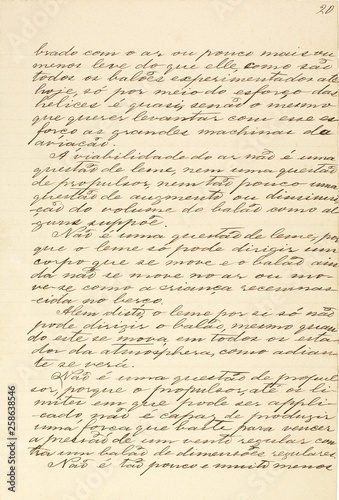 20
brado com o ar ou pouco mais ou
menos leve do que elle, como são
todos os balões experimentados até
hoje, só por meio do esforço das
helices é quasi, senão o mesmo
que querer levantar com esse es-
forço as grandes machinas de
aviação.
A viabilidade do ar não é uma
questão de leme, nem uma questão
de propulsor, nem tão pouco uma
questão de augmento ou diminui-
ção do volume do balão como al-
guns suppõe.
Não é uma questão de leme, por
que o leme só pode dirigir um
corpo que se move e o balão ain-
da não se move no ar ou mo-
ve-se como a criança recemnas-
cida no berço.
Alem disto, o leme por si só não
pode dirigir o balão, mesmo quan-
do este se mova, em todos os esta-
dos da atmosphera, como adian-
te se verá.
Não é uma questão de propul-
sor, porque o propulsor, até os li-
mites em que pode ser appli-
cado, não é capaz de produzir
uma força que baste para vencer
a pressão de um vento regular con-
tra um balão de dimensões regulares.
Não é tão pouco e muito menos
Adobe Stock | #258638546